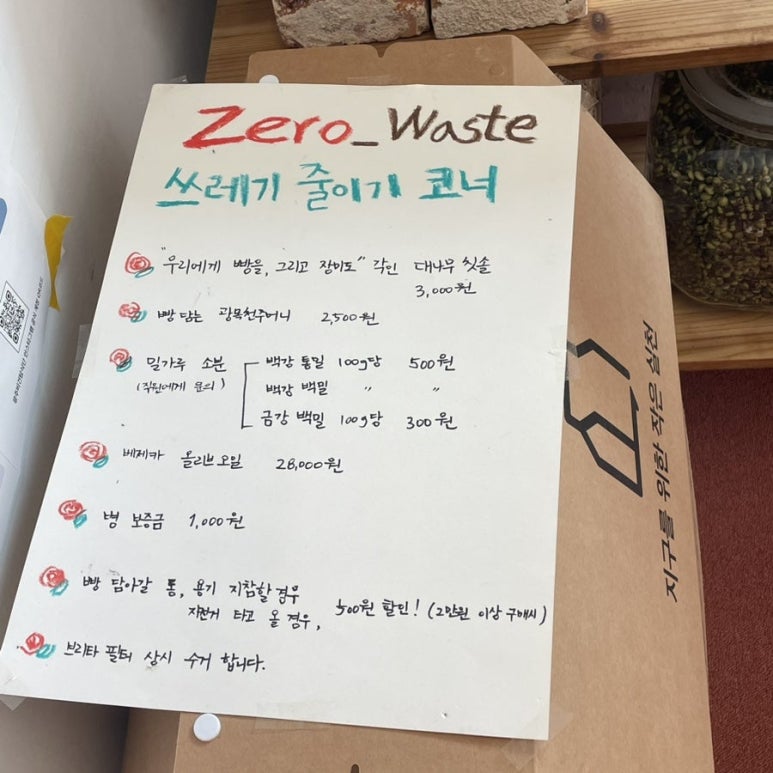 Zero_Waste
쓰레기 줄이기 코너
"우리에게 빵을, 그리고 장미도" 각인 대나무 칫솔
3,000원
빵 담는 광목천주머니 2,500원
밀가루 소분 백강 통밀 100g당 500원
(직원에게 문의) 백강 백밀 〃 〃
금강 백밀 100g당 300원
베제카 올리브오일 28,000원
병 보증금 1,000원
빵 담아갈 통, 용기 지참할 경우
자전거 타고 올 경우, 500원 할인! (2만원 이상 구매시)
브리타 필터 상시 수거 합니다.
지구를 위한 작은 실천